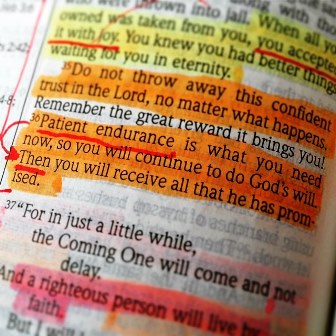 were thrown into jail. When all
owned was taken from you, you accepted
it with joy. You knew you had better things
waiting for you in eternity.
35Do not throw away this confident
trust in the Lord, no matter what happens.
Remember the great reward it brings you!
36Patient endurance is what you need
now, so you will continue to do God's will.
Then you will receive all that he has prom-
ised.
37"For in just a little while,
the Coming One will come and not
delay.
And a righteous person will live
faith.
But I will
2:42;
4-8;